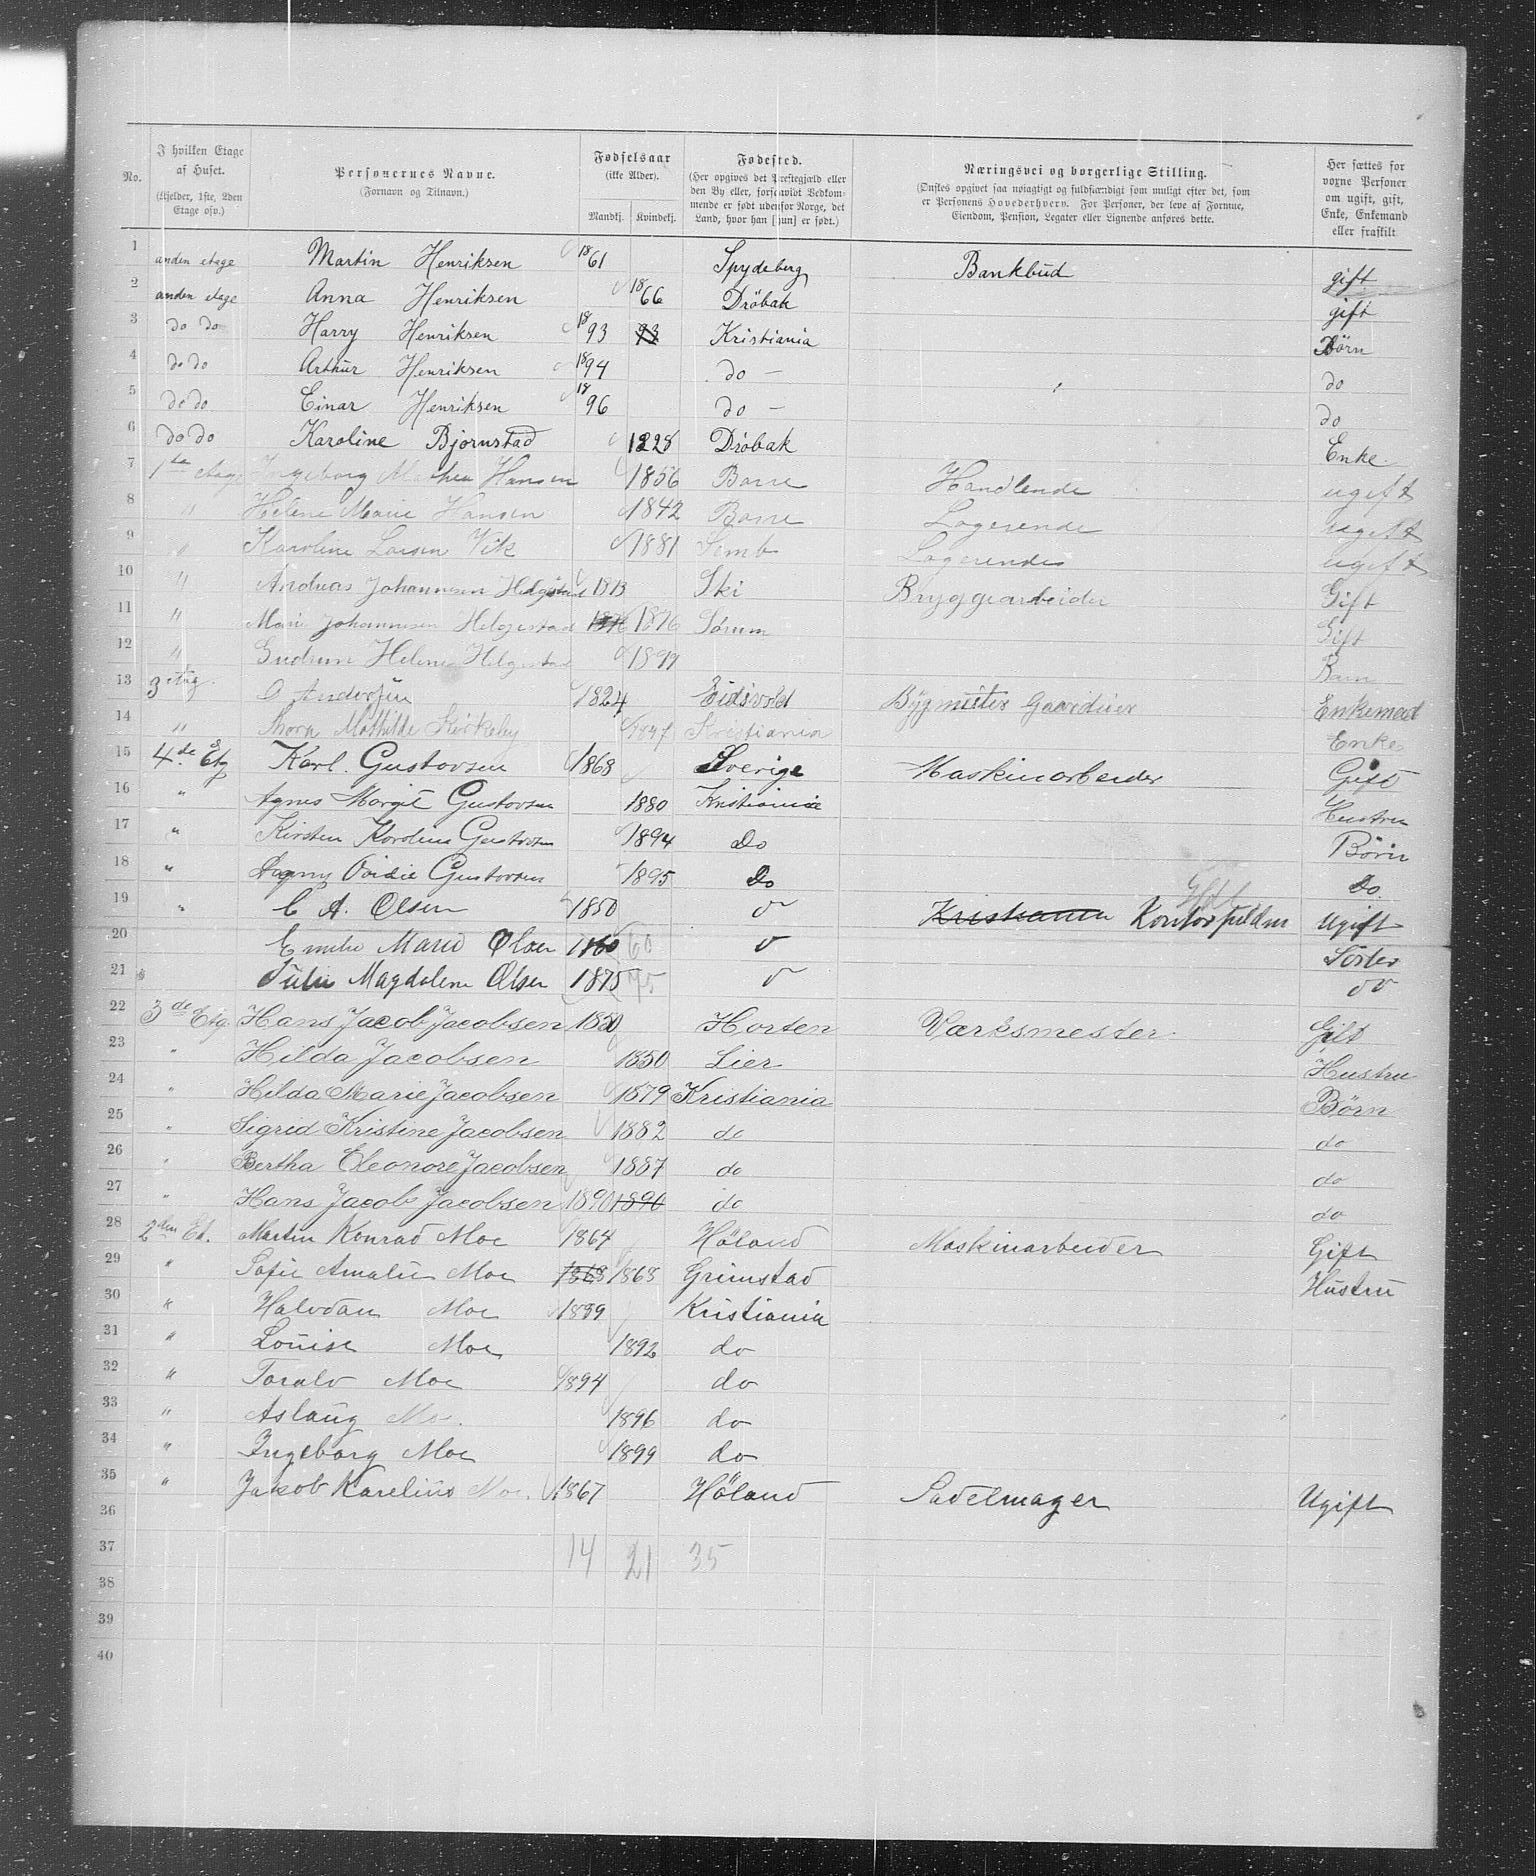 No. | I hvilken Etage af Huset. (Kjelder, 1ste, 2den Etage osv.) | Personernes Navne. (Fornavn og Tilnavn.) | Fødselsaar (ikke Alder). Mandkj. | Kvindekj. | Fødested. (Her opgives det Præstegjæld eller den By eller, forsaavidt Vedkommende er født udenfor Norge, det Land, hvor han [hun] er født.) | Næringsvei og borgerlige Stilling. (Ønskes opgivet saa nøiagtigt og fuldstændigt som muligt efter det, som er Personens Hovederhverv. For Personer, der leve af Formue, Eiendom, Pension, Legater eller Lignende anføres dette. | Her sættes for voxne Personer om ugift, gift, Enke, Enkemand eller fraskilt
1 anden etage Martin Henriksen 1861 Spydeberg Bankbud gift
2 anden etage Anna Henriksen 1866 Dröbak gift
3 do do Harry Henriksen 1893 93 Kristiania Börn
4 do do Arthur Henriksen 1894 do - do
5 do do Einar Henriksen 1896 do - do
6 do do Karoline Bjornstad 1828 Dröbak Enke.
7 1ste etage Ingeborg Hansen 1856 Borre Handlende ugift
8 " Helene Marie Hansen 1842 Borre Logerende ugift
9 " Karoline Larsen Vik 1881 Semb Logerende ugift
10 " Andreas Johannesen Helgestad 1873 Ski Bryggearbeider Gift
11 " Marie Johannesen Helgestad 1876 1876 Sörum Gift
12 " Gudrun Helene Helgestad 1899 Barn
13 3 Etag. O Andersen 1824 Eidsvold Bygmester Gaardeier Enkemand
14 " Thora Mathilde Kirkeby 1847 Kristiania Enke
15 4de Etg Karl. Gustavsen 1868 Sverige Maskinarbeider Gift
16 " Agnes Margit Gustavsen 1880 Kristiania Hustru
17 " Kirsten Karoline Gustavsen 1894 Do Börn
18 " Gustavsen 1895 Do Do.
19 " C A. Olsen 1850 " Kristiania Kontorfuldm Ugift
20 Emilie Marie Olsen 1860 60 " Söster
21 " Julie Magdalene Olsen 1875 75 " " "
22 3de Etg. Hans Jacob Jacobsen 1850 Horten Værksmester Gift
23 " Hilda Jacobsen 1850 Lier Hustru
24 " Hilda Marie Jacobsen 1879 Kristiania Börn
25 " Sigrid Kristine Jacobsen 1882 do do
26 " Bertha Eleonore Jacobsen 1887 do do
27 " Hans Jacob Jacobsen 1890 1890 do do
28 2den Et. Martin Konrad Moe 1864 Höland Maskinarbeider Gift
29 " Sofie Amalie Moe 1868 1868 Grimstad Hustru
30 " Halvdan Moe 1889 Kristiania
31 " Louise Moe 1892 do
32 " Toralv Moe 1894 do
33 " Aslaug Moe. 1896 do
34 " Ingeborg Moe 1899 do
35 " Jakob Karelius Moe. 1867 Höland Sadelmager Ugift
36
37 14 21 35
38
39
40